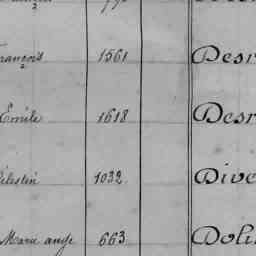 François 1561 Desr
2
Emile 1618 Desr
Célestin 1032 Dive
Marie ange 663 Doli